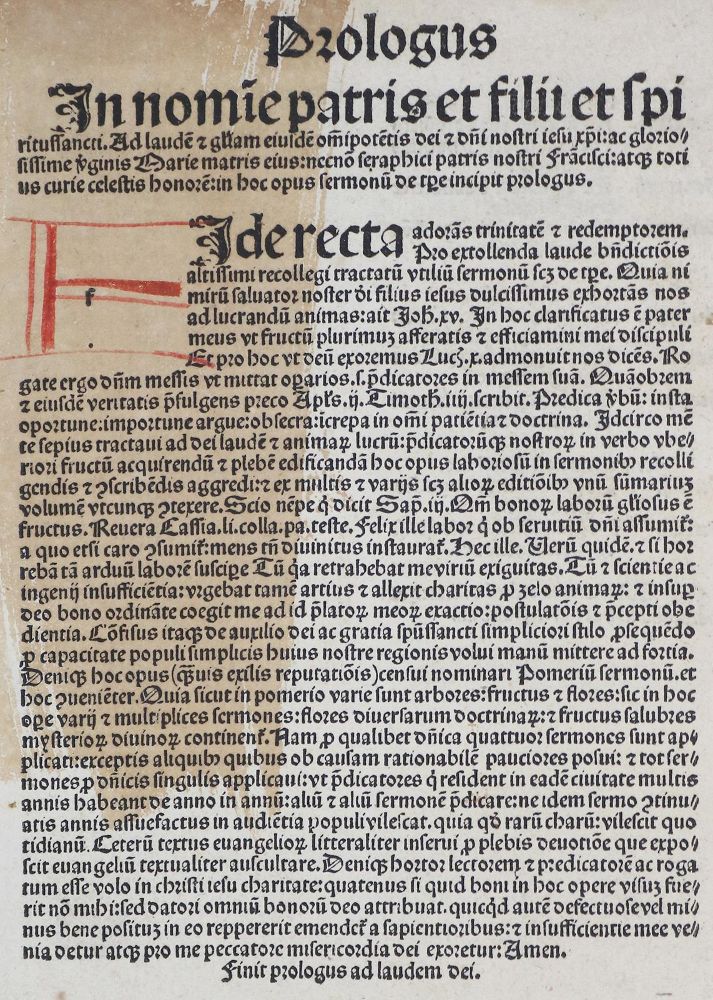 Prologus
In nomīe patris et filii et spi
ritussancti. Ad laudē ⁊ gl̄iam eiusdē om̄ipotētis dei ⁊ dn̄i nostri iesu xp̄i: ac glorio⸗
sissime v̓ginis Marie matris eius: necnō seraphici patris nostri Frācisci: atqꝫ toti
us curie celestis honorē: in hoc opus sermonū de tp̄e incipit prologus.
f
Ide recta adorās trinitatē ⁊ redemptorem.
Pro extollenda laude bn̄dictiōis
altissimi recollegi tractatū vtiliū sermonū scꝫ de tp̄e. Quia ni
mirū saluator noster dei filius iesus dulcissimus exhortās nos
ad lucrandū animas: ait Joh̄. xv. In hoc clarificatus ē pater
meus vt fructū plurimuꝫ afferatis ⁊ efficiamini mei discipuli
Et pro hoc vt deū exoremus Luc̄. x. admonuit nos dicēs. Ro
gate ergo dn̄m messis vt mittat oꝑarios. s. p̄dicatores in messem suā. Quāobrem
⁊ eiusdē veritatis p̄fulgens preco Apl̄s. ij. Timoth̄. iiij. scribit. Predica v̓bū: insta
oportune: importune argue: obsecra: īcrepa in om̄i patiētia ⁊ doctrina. Idcirco mē
te sepius tractaui ad dei laudē ⁊ animaꝝ lucrū: p̄dicatorūqꝫ nostroꝝ in verbo vbe⸗
riori fructū acquirendū ⁊ plebē edificandā hoc opus laboriosū in sermonibꝫ recolli
gendis ⁊ ꝯscribēdis aggredi: ⁊ ex multis ⁊ varijs scꝫ alioꝝ editiōibꝫ vnū sūmariuꝫ
volumē vtcunqꝫ ꝯtexere. Scio nēpe ꝙ dicit Sap̄. iij. Qm̄ bonoꝝ laborū gl̄iosus ē
fructus. Reuera Cassia. li. colla. pa. teste. Felix ille labor q̇ ob seruitiū dn̄i assumit̄:
a quo etsi caro ꝯsumit̄: mens tn̄ diuinitus instaurat̄. Hec ille. Uerū quidē. ⁊ si hor
rebā tā arduū laborē suscipe Tū q̇a retrahebat me viriū exiguitas. Tū ⁊ scientie ac
ingenij insufficiētia: vrgebat tamē artius ⁊ allexit charitas ꝓ zelo animaꝝ: ⁊ insuꝑ
deo bono ordināte coegit me ad id p̄latoꝝ meoꝝ exactio: postulatōis ⁊ p̄cepti obe
dientia. Cōfisus itaqꝫ de auxilio dei ac gratia sp̄ussancti simpliciori stilo ꝓsequēdo
ꝓ capacitate populi simplicis huius nostre regionis volui manū mittere ad fortia.
Deniqꝫ hoc opus (q̄ꝫuis exilis reputatiōis) censui nominari Pomeriū sermonū. et
hoc ꝯueniēter. Quia sicut in pomerio varie sunt arbores: fructus ⁊ flores: sic in hoc
oꝑe varij ⁊ multiplices sermones: flores diuersarum doctrinaꝝ: ⁊ fructus salubres
mysterioꝝ diuinoꝝ continent̄. Nam ꝓ qualibet dn̄ica quattuor sermones sunt ap⸗
plicati: exceptis aliquibꝫ quibus ob causam rationabilē pauciores posui: ⁊ tot ser⸗
mones ꝓ dn̄icis singulis applicaui: vt p̄dicatores q̇ resident in eadē ciuitate multis
annis habeant de anno in annū: aliū ⁊ aliū sermonē p̄dicare: ne idem sermo ꝯtinu⸗
atis annis assuefactus in audiētia populi vilescat. quia qd̓ rarū charū: vilescit quo
tidianū. Ceterū textus euangelioꝝ litteraliter inserui ꝓ plebis deuotiōe que expo⸗
scit euangeliū textualiter auscultare. Deniqꝫ hortor lectorem ⁊ predicatorē ac roga
tum esse volo in christi iesu charitate: quatenus si quid boni in hoc opere visuꝫ fue⸗
rit nō mihi: sed datori omniū bonorū deo attribuat. quicqd̓ autē defectuose vel mi⸗
nus bene posituꝫ in eo reppererit emendet̄ a sapientioribus: ⁊ insufficientie mee ve⸗
nia detur atqꝫ pro me peccatore misericordia dei exoretur: Amen.
Finit prologus ad laudem dei.